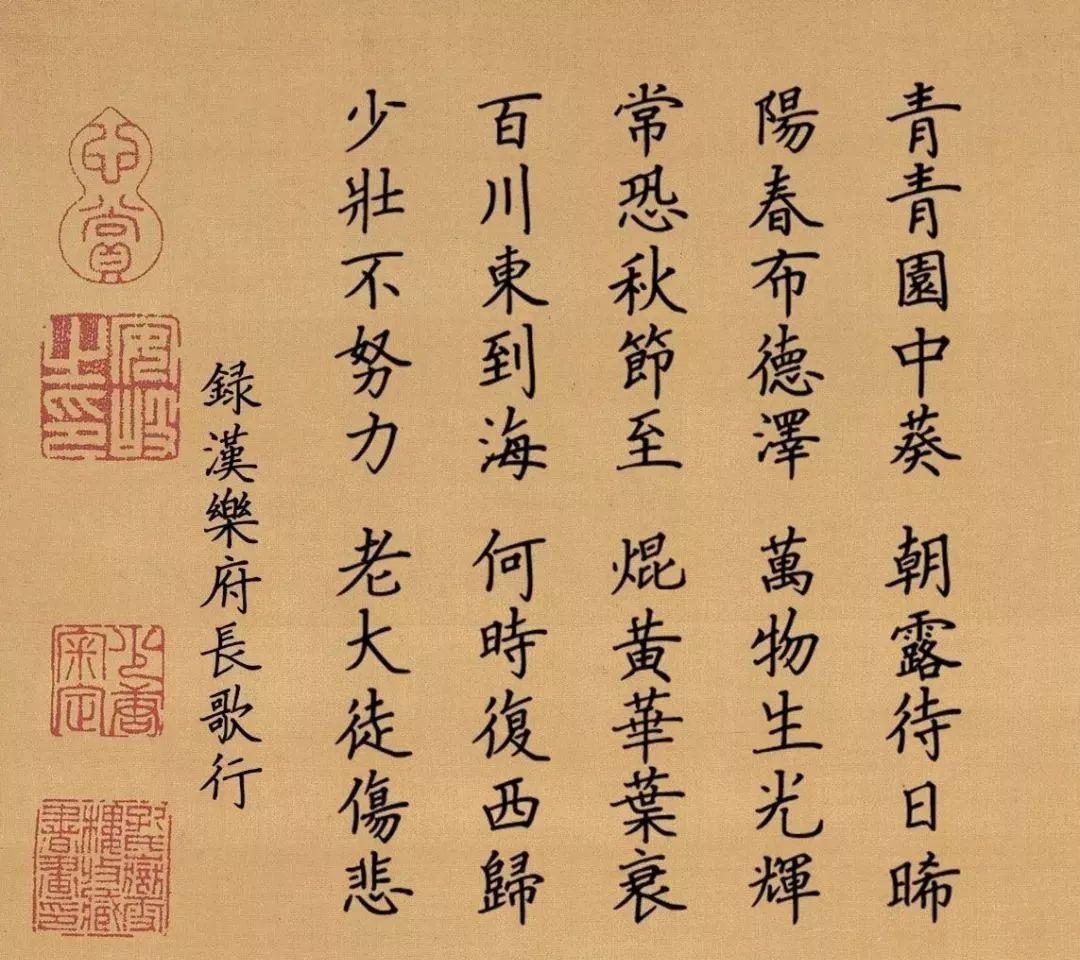 青青園中葵 朝露待日晞
陽春布德澤 萬物生光輝
常恐秋節至 焜黃華葉衰
百川東到海 何時復西歸
少壯不努力 老大徒傷悲
録漢樂府長歌行
心賞
安岐之印